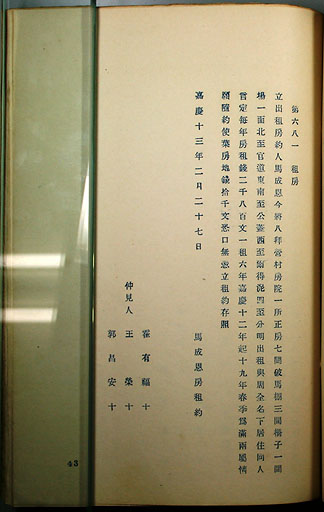 第六八一 租房
立出租房約人馬成恩今將八拜營村房院一所正房七間破馬棚三間橋子一間
場一面北至官道東南至公蓋西至賴得泥四至分明出租與周全名下居住同人
言定每年房租錢二千八百文一租六年嘉慶十二年起十九年春季為滿兩願情
願種約使業房地錢拾千文恐口無憑立租約存照
嘉慶十三年二月二十七日 馬成恩房租約
霍有福十
仲見人 王榮十
郭昌安十
43